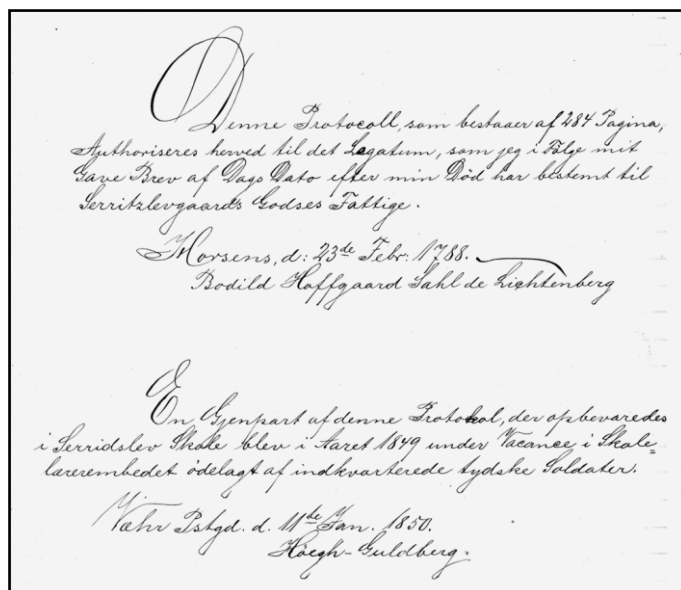 Denne Protocoll, som bestaaer af 284 Pagina,
Authoriseres herved til det Legatum, som jeg i Følge mit
Gave Brev af Dags Dato efter min Død har bestemt til
Serritzlevgaards Godses Fattige.
Horsens, d: 23de Febr: 1788.
Bodild Hoffgaard Sahl de Lichtenberg
En Gjenpart af denne Protokol, der opbevaredes
i Serridslev Skole blev i Aaret 1849 under Vacance i Skole=
lærerembedet ödelagt af indkvarterede tydske Soldater.
Væhr Pstgd. d. 11te Jan. 1850.
Höegh-Guldberg.